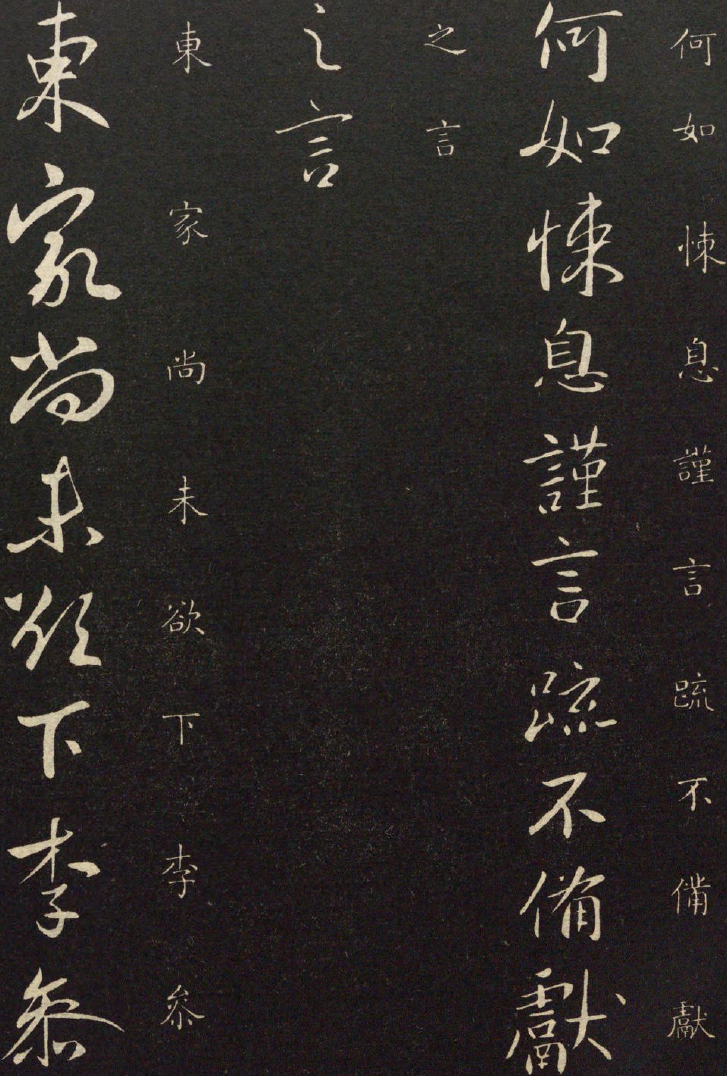 何如悚息謹言䟽不俻獻
何如悚息謹言䟽不俻獻
之言
之言
東家尚未欲下李叅
東家尚未欲下李叅